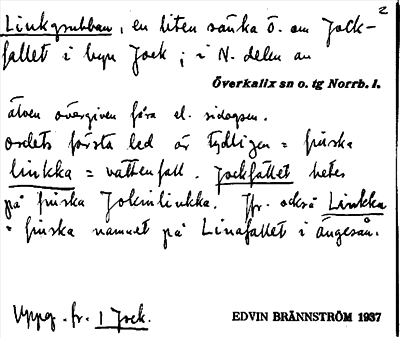 2
Linkgrubban, en liten sänka ö. om Jock-
fallet i byn Jock ; i N. delen av
Överkalix sn o. tg Norrb. l.
älven övergiven fåra el. sidogren.
ordets första led är tydligen = finska
linkka = vattenfall. Jockfallet heter
på finska Jokinlinkka. Jfr. också Linkka
= finska namnet på Linafallet i Ängesån.
Uppg. fr. 1 Jock.
EDVIN BRÄNNSTRÖM 1937